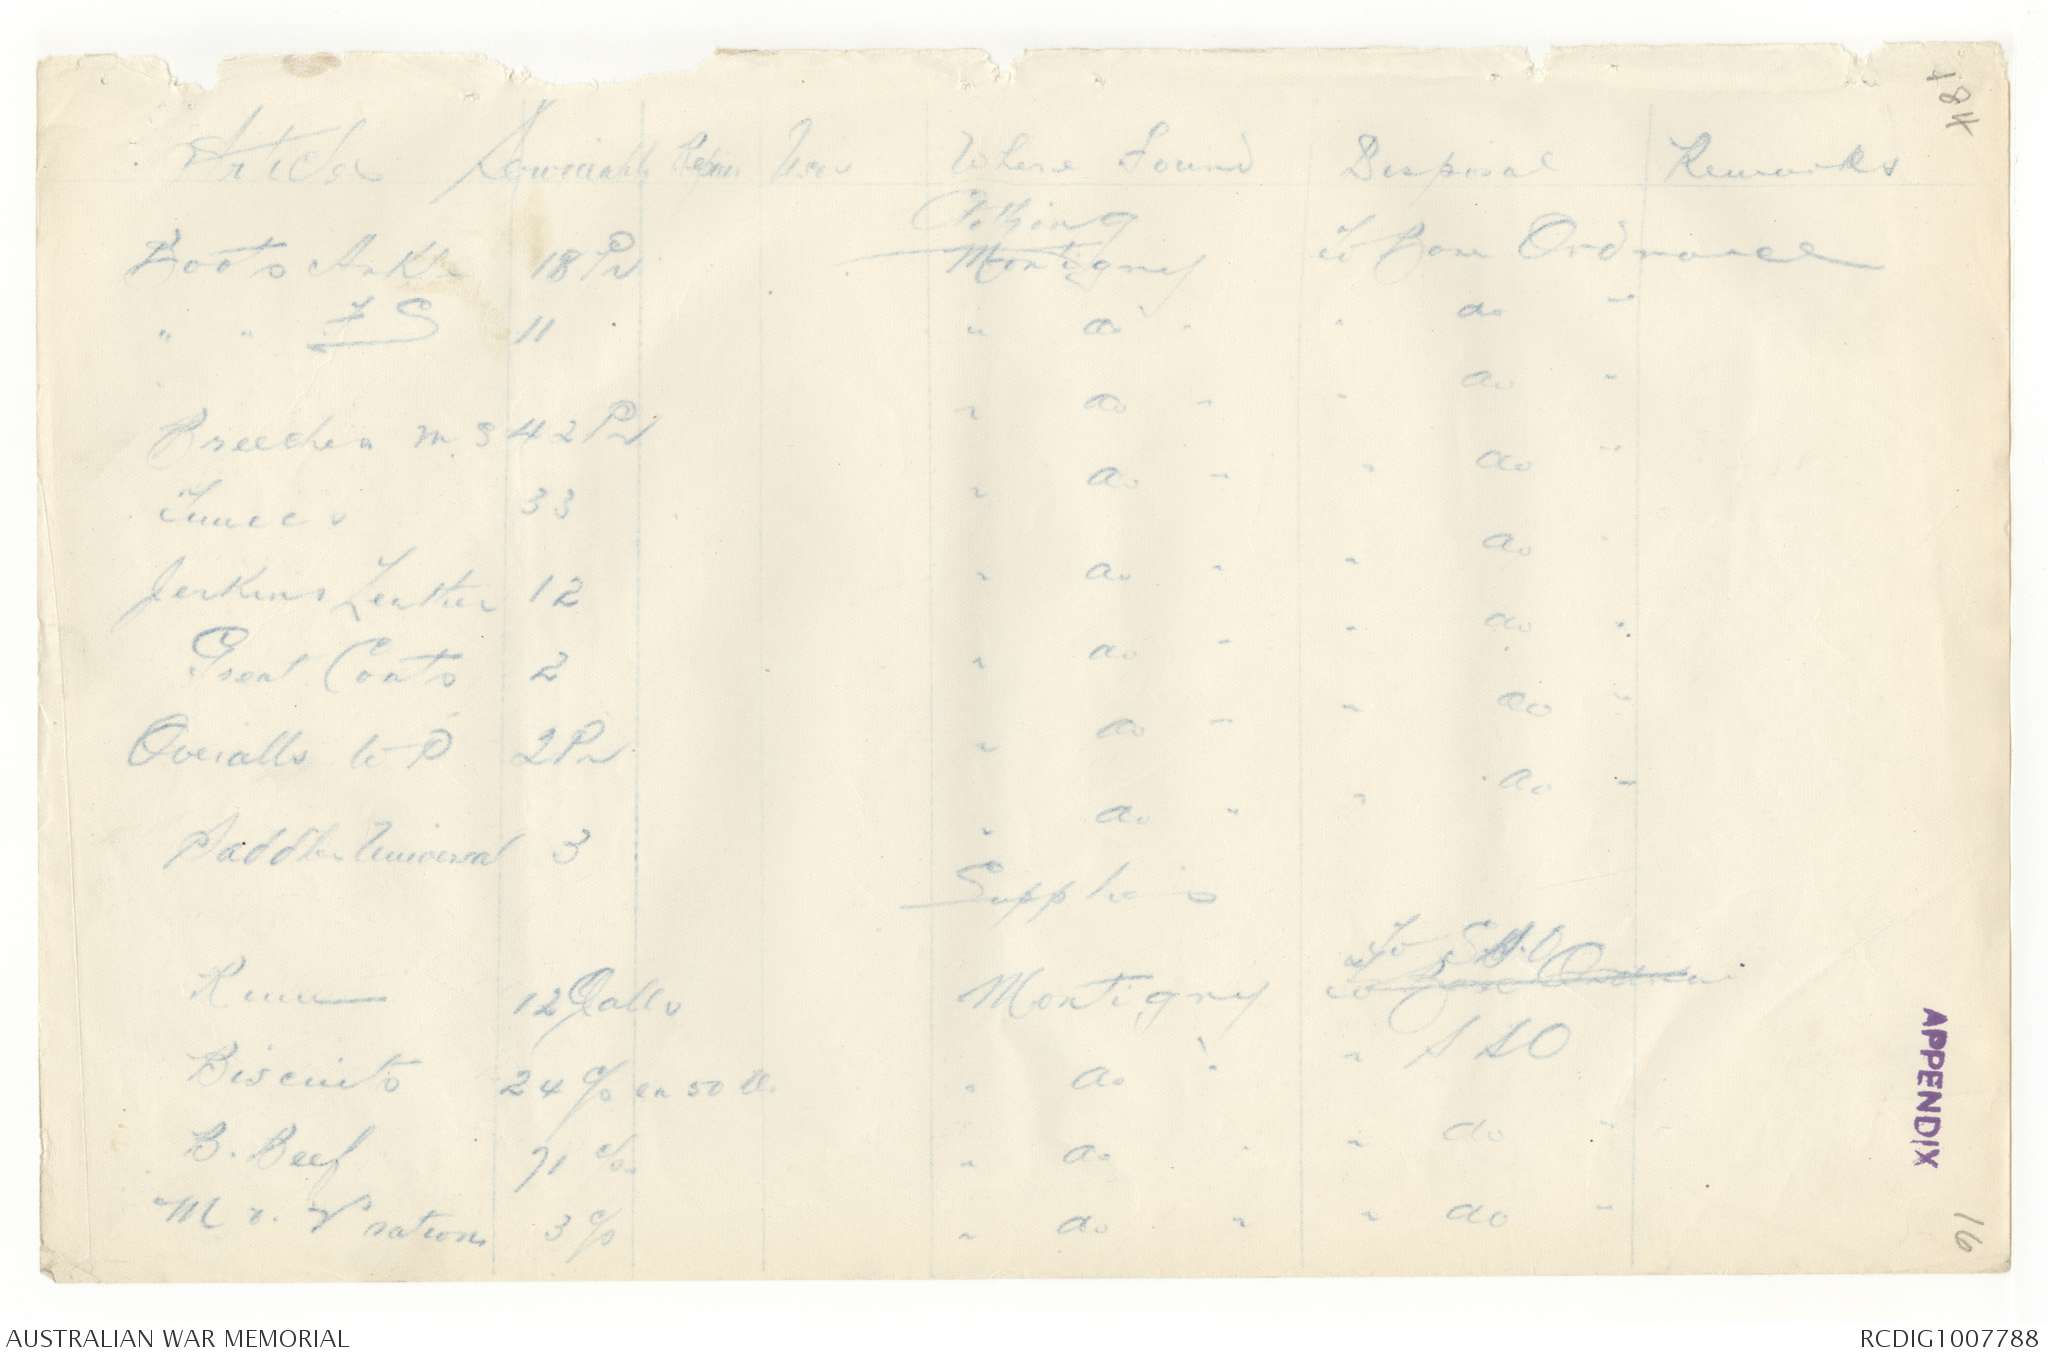 184
Articles Serviceable Repair Where Found Disposal Remarks
Clothing
Boots Ankle 18 Pr Montigny to Base Ordnance
" " F S 11 " do " " do "
Breeches M.S 42 Pr " do " " do "
Tunics 33 " do " " do "
Jerkins Leather 12 " do " " do "
Great Coats 2 " do " " do "
Overalls 2 Pr " do " " do "
Saddles Universal 3 " do " " do "
Supplies
To
Rum 12 Galls Montigny to Base
Biscuits 24 c/s ea 50 lb. " do " "
B. Beef 71 c/s " do " " do "
M & V rations 3 c/s " do " " do "
APPENDIX
16
AUSTRALIAN WAR MEMORIAL
RCDIG1007788